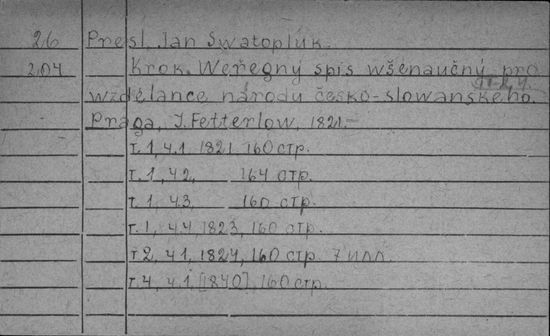 26 Presl, Jan Swatopluk.
204 Krok. Weřegný spis wšenaučný pro
wzdělance národu česko-slowanského.
Praga, J. Fetterlow, 1821.-
т. 1, ч. 1 1821, 160 стр.
т. 1, ч. 2, 164 стр.
т. 1, ч. 3, 160 стр.
т. 1, ч. 4 1823, 160 стр.
т. 2, ч. 1, 1824, 160 стр. 7 илл.
т. 4, ч. 1, [1840], 160 стр.